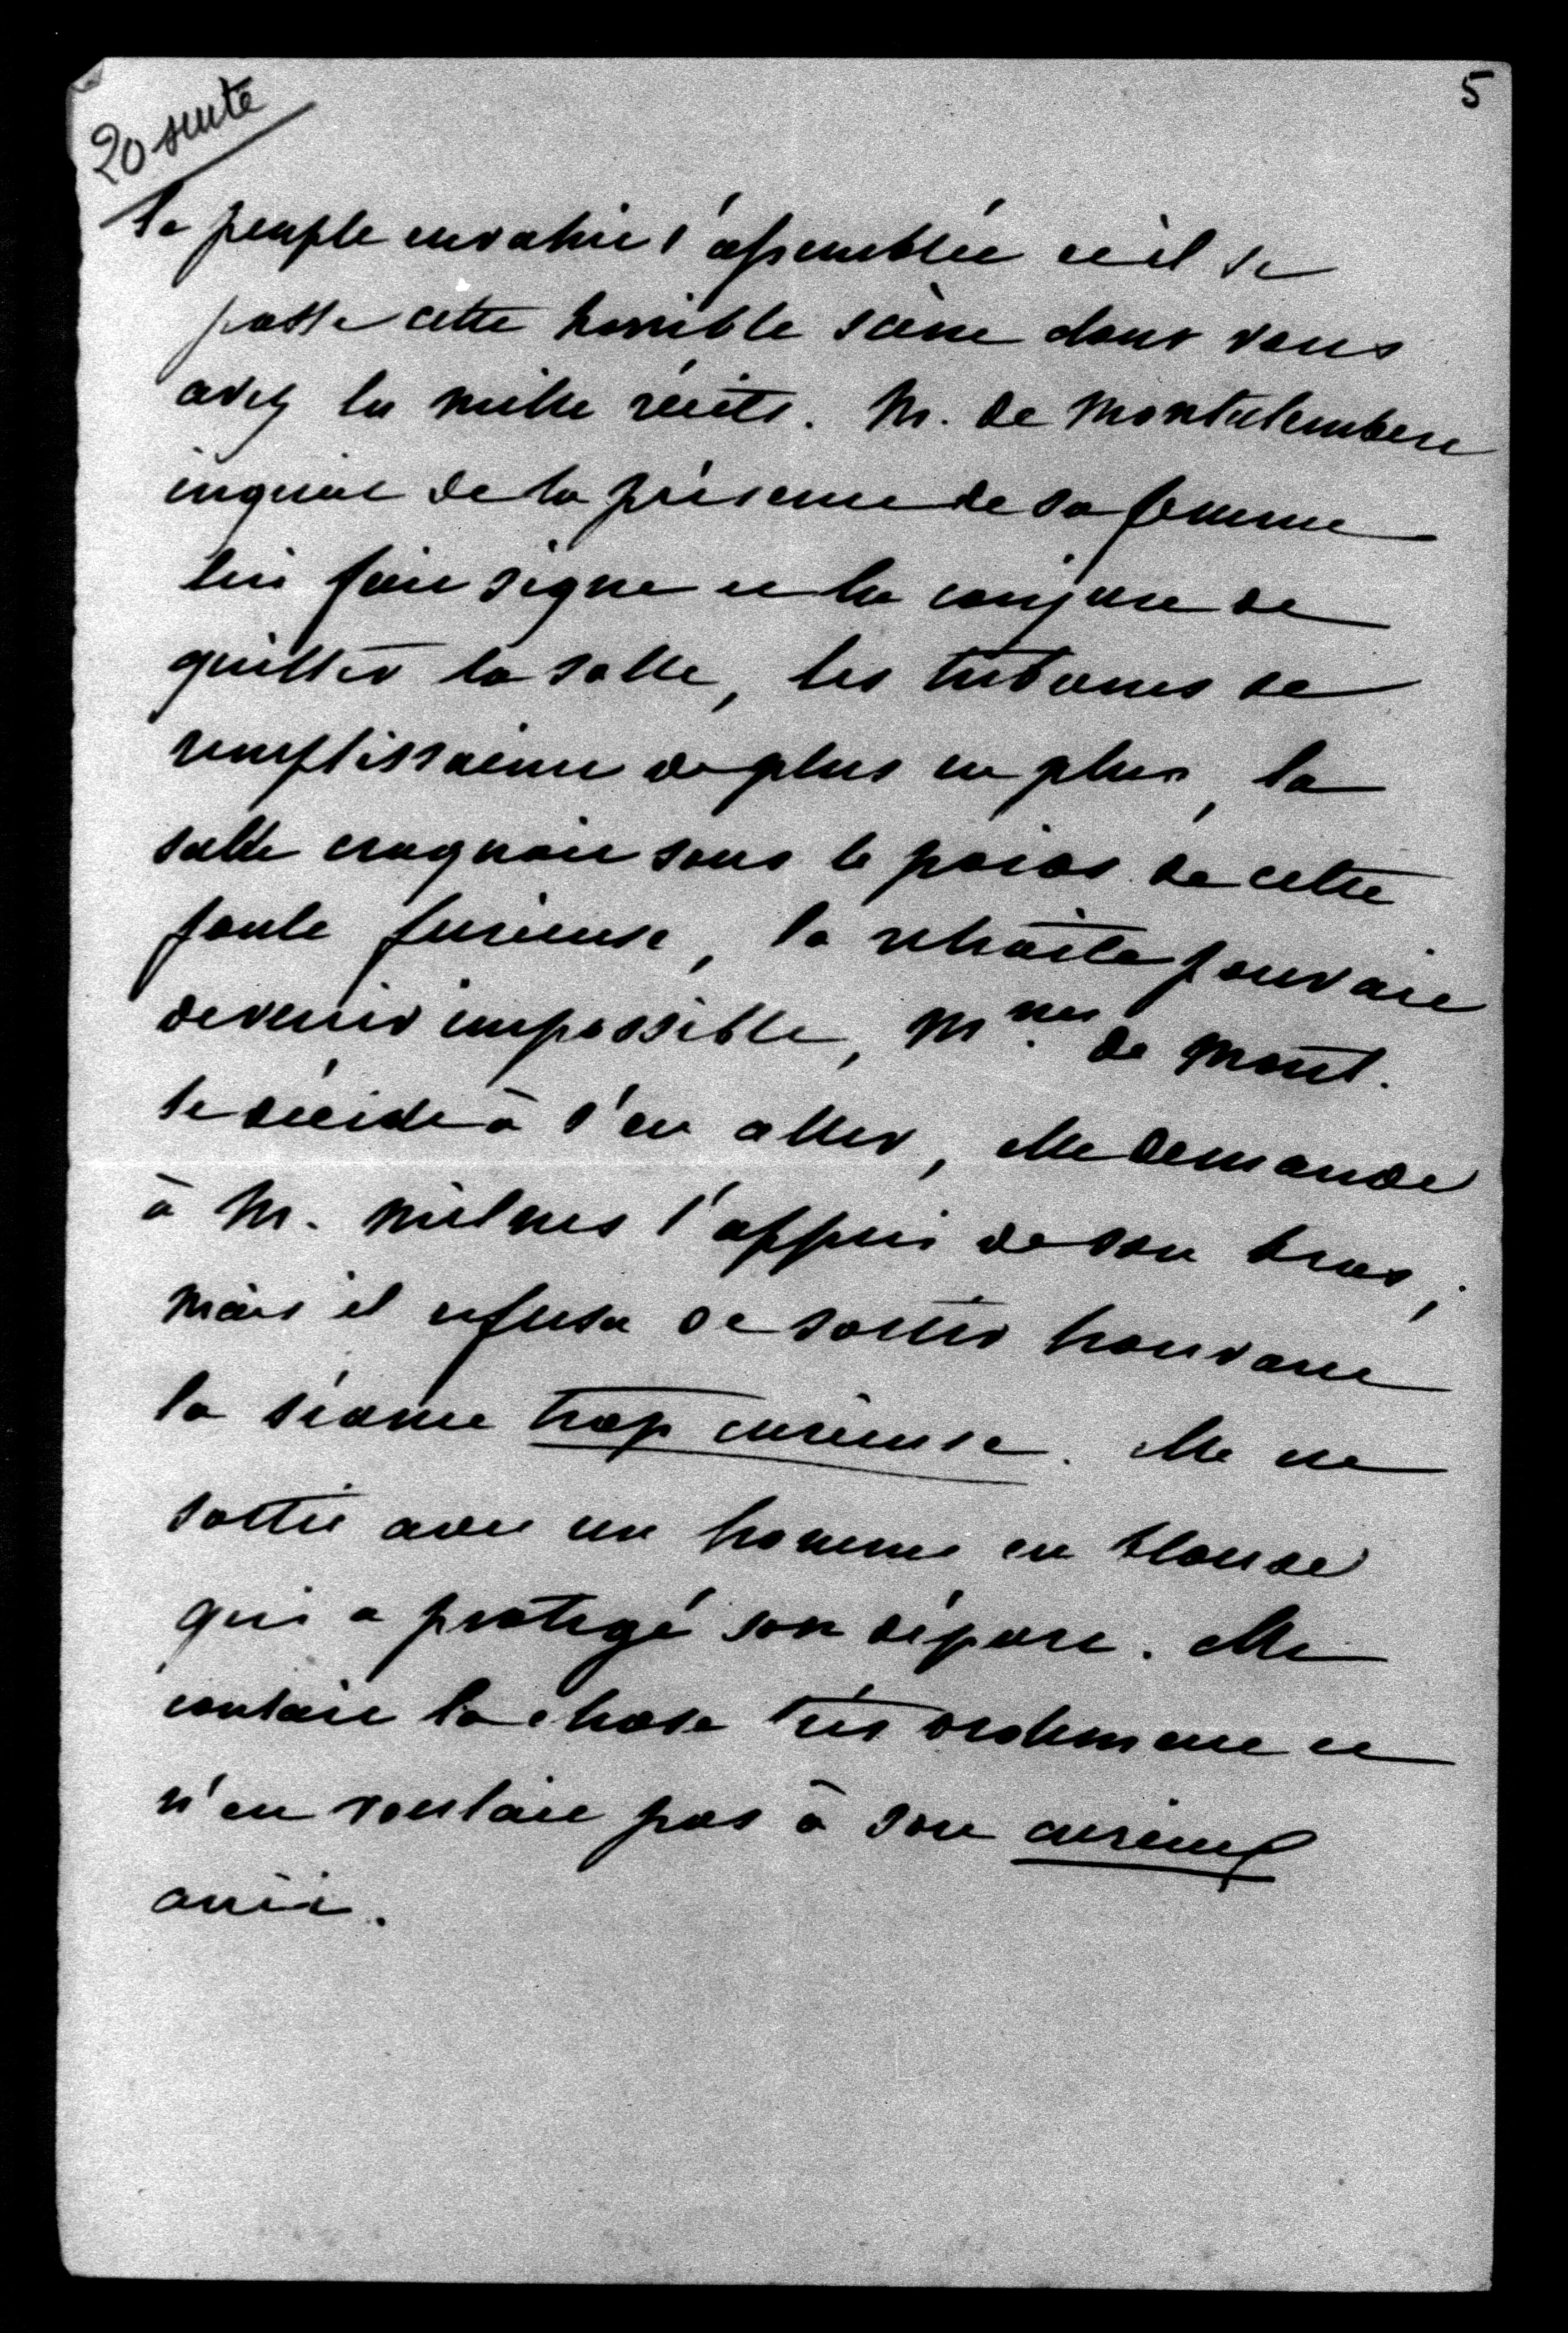 5
20 suite
le peuple envahit l'assemblée et il se
passe cette horrible scène dont vous
avez lu mille récits. M. de Montalembert
inquiet de la présence de sa femme
lui fait signe et la conjure de
quitter la salle, les tribunes se
remplissaient de plus en plus, la
salle craquait sous le poids de cette
foule furieuse, la retraite pouvait
devenir impossible, Mme. de Mont.
se décide à s'en aller, elle demande
à M. Milnes l'appui de son bras,
mais il refusa de sortir trouvant
la séance trop curieuse. Elle est
sortie avec un homme en blouse
qui a protégé son départ. Elle
contait la chose très drôlement et
n'en voulait pas à son curieux
ami.